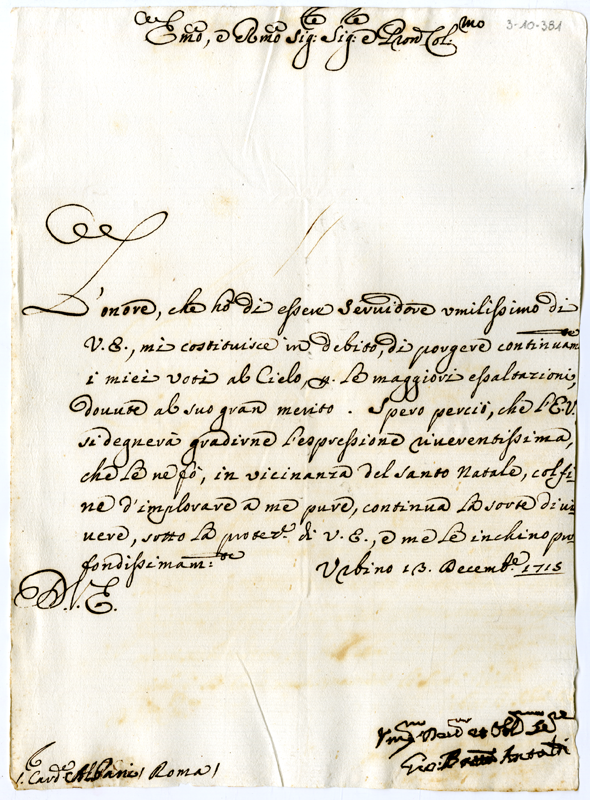 3-10-381
Emo, e Rmo Sig:re Sig:re e Pron Col:mo
L'onore, che hò di essere Servidore umilissimo di
V. E., mi costituisce in debito, di porgere continuam.te
i miei voti al Cielo, p. le maggiori esaltazioni,
dovute al suo gran merito. Spero perciò, che l'E.V.
si degnerà gradirne l'espressione riverentissima,
che le ne fò, in vicinanza del Santo Natale, col fi=
ne d'implorare a me pure, continua la sorte di vi=
vere, sotto la protez.e di V. E., e me le inchino pro=
fondissimam:te Urbino 13. Decemb.e 1715
D. V. E.
Vmo Devmo et Obl Se.re
Antaldi
S. Card.e Albani / Roma /